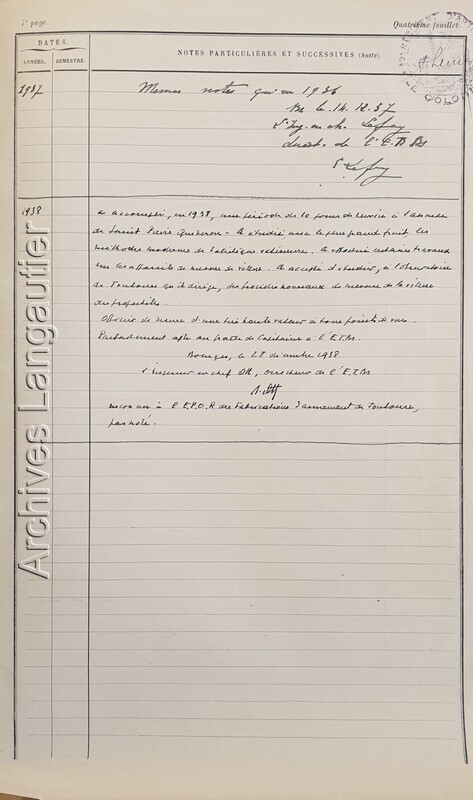 7e page.
Quatrième feuillet.
DATES.
ANNÉES.
SEMESTRE.
NOTES PARTICULIÈRES ET SUCCESSIVES (Suite).
1937
Mêmes notes qu'en 1936
Bs le 14.12.37
L'Ing. en ch. Lafay
direct. de l'E.T.Bs
Lafay
1938
a accompli, en 1938, une période de 10 jours de service à l'annexe
de Saint Pierre Quiberon. A étudié avec le plus grand fruit les
méthodes modernes de balistique extérieure. A effectué certains travaux
sur les appareils de mesure de vitesse. A accepté d'étudier, à l'observatoire
de Toulouse qu'il dirige, des procédés nouveaux de mesure de la vitesse
des projectiles.
Officier de réserve d'une très haute valeur à tous points de vue.
Parfaitement apte au grade de Capitaine à l'E.T.Bs.
Bourges, le décembre 1938
L'Ingénieur en chef Directeur de l'E.T.Bs
inconnu à l'E.P.O.R des Fabrications d'armement de Toulouse,
pas noté.
Archives Langautier